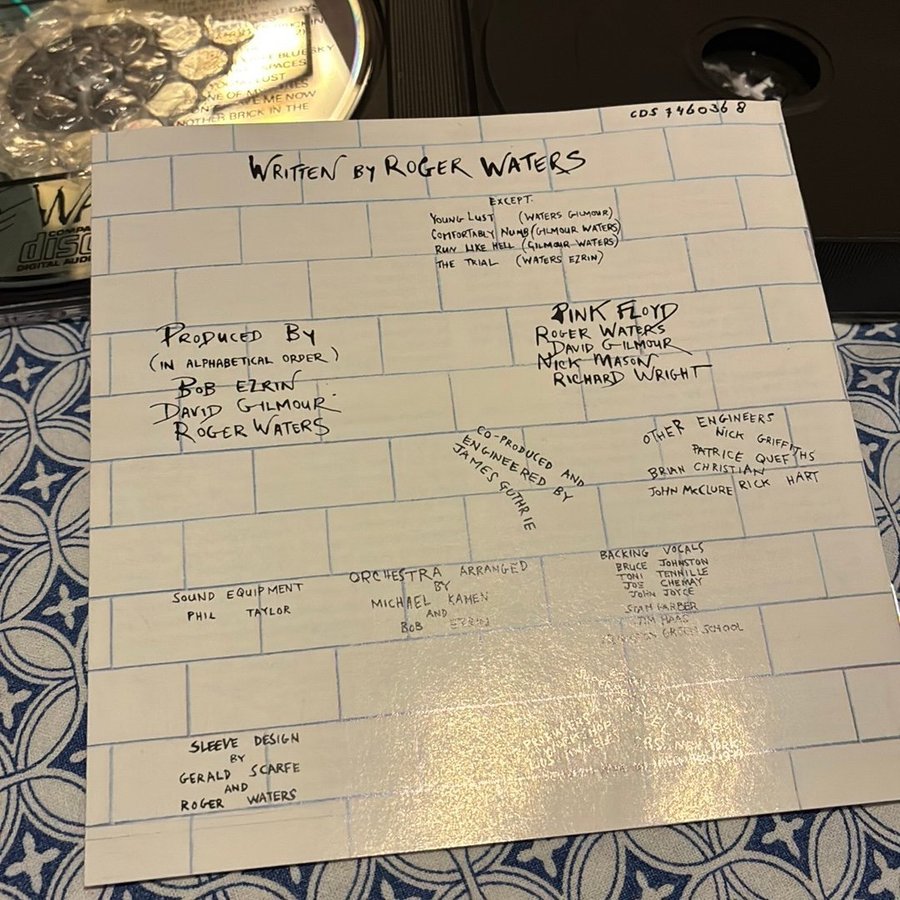 EST DAYS
BLUE SKY
SPACES
LUST
ONE OF MY
LEAVE ME NOW
NOTHER BRICK IN THE
WA
COMPA
disc
DIGITAL AUD
CDS 7460368
WRITTEN BY ROGER WATERS
EXCEPT.
YOUNG LUST (WATERS GILMOUR)
COMFORTABLY NUMB (GILMOUR WATERS)
RUN LIKE HELL (GILMOUR WATERS)
THE TRIAL (WATERS EZRIN)
PRODUCED BY
(IN ALPHABETICAL ORDER)
BOB EZRIN
DAVID GILMOUR
ROGER WATERS
PINK FLOYD
ROGER WATERS
DAVID GILMOUR
NICK MASON
RICHARD WRIGHT
CO-PRODUCED AND
ENGINEERED BY
JAMES GUTHRIE
OTHER ENGINEERS
NICK GRIFFITHS
PATRICE QUEF
BRIAN CHRISTIAN
JOHN McCLURE RICK HART
SOUND EQUIPMENT
PHIL TAYLOR
ORCHESTRA ARRANGED
BY
MICHAEL KAMEN
AND
BOB EZRIN
BACKING VOCALS
BRUCE JOHNSTON
TONI TENNILLE
JOE CHEMAY
JOHN JOYCE
STAN FARBER
JIM HAAS
GREEN SCHOOL
NEW YORK
SLEEVE DESIGN
BY
GERALD SCARFE
AND
ROGER WATERS